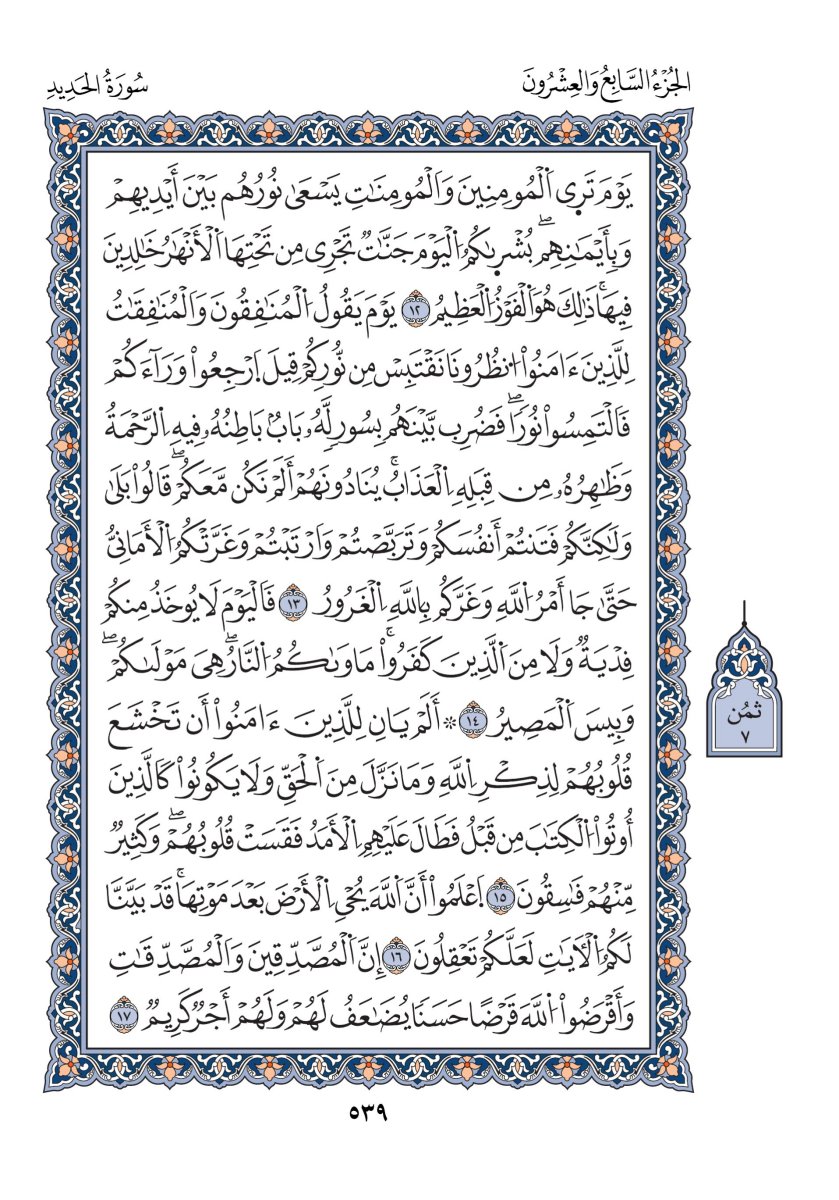 الجُزْءُ السَّابِعُ وَالعِشْرُونَ
سُورَةُ الحَدِيدِ
يَوْمَ تَرَى اَ۬لْمُومِنِينَ وَالْمُومِنَٰتِ يَسْعَىٰ نُورُهُم بَيْنَ أَيْدِيهِمْ
وَبِأَيْمَٰنِهِمۖ بُشْر۪ىٰكُمُ اُ۬لْيَوْمَ جَنَّٰتٌ تَجْرِى مِن تَحْتِهَا اَ۬لْأَنْهَٰرُ خَٰلِدِينَ
فِيهَاۚ ذَٰلِكَ هُوَ اَ۬لْفَوْزُ اُ۬لْعَظِيمُ ١٢ يَوْمَ يَقُولُ اُ۬لْمُنَٰفِقُونَ وَالْمُنَٰفِقَٰتُ
لِلَّذِينَ ءَامَنُواْ اُ۟نظُرُونَا نَقْتَبِسْ مِن نُّورِكُمْ قِيلَ اَ۪رْجِعُواْ وَرَآءَكُمْ
فَالْتَمِسُواْ نُورٗاۖ فَضُرِب بَّيْنَهُم بِسُورٖ لَّهُۥ بَابُۢ بَاطِنُهُۥ فِيهِ اِ۬لرَّحْمَةُ
وَظَٰهِرُهُۥ مِن قِبَلِهِ اِ۬لْعَذَابُۚ يُنَادُونَهُمْ أَلَمْ نَكُن مَّعَكُمْۖ قَالُواْ بَلَىٰ
وَلَٰكِنَّكُمْ فَتَنتُمْ أَنفُسَكُمْ وَتَرَبَّصْتُمْ وَارْتَبْتُمْ وَغَرَّتْكُمُ اُ۬لْأَمَانِىُّ
حَتَّىٰ جَا أَمْرُ اُ۬للَّهِ وَغَرَّكُم بِاللَّهِ اِ۬لْغَرُورُ ١٣ فَالْيَوْمَ لَا يُوخَذُ مِنكُمْ
فِدْيَةٌ وَلَا مِنَ اَ۬لَّذِينَ كَفَرُواْۚ مَاوَىٰكُمُ اُ۬لنَّارُۖ هِىَ مَوْلَىٰكُمْۖ
وَبِيسَ اَ۬لْمَصِيرُ ١٤ ۞ أَلَمْ يَانِ لِلَّذِينَ ءَامَنُواْ أَن تَخْشَعَ
قُلُوبُهُمْ لِذِكْرِ اِ۬للَّهِ وَمَا نَزَّلَ مِنَ اَ۬لْحَقِّ وَلَا يَكُونُواْ كَالَّذِينَ
أُوتُواْ اُ۬لْكِتَٰبَ مِن قَبْلُ فَطَالَ عَلَيْهِمِ اِ۬لْأَمَدُ فَقَسَتْ قُلُوبُهُمْۖ وَكَثِيرٌ
مِّنْهُمْ فَٰسِقُونَ ١٥ اَ۪عْلَمُواْ أَنَّ اَ۬للَّهَ يُحْىِ اِ۬لْأَرْضَ بَعْدَ مَوْتِهَاۚ قَدْ بَيَّنَّا
لَكُمُ اُ۬لْأٓيَٰتِ لَعَلَّكُمْ تَعْقِلُونَ ١٦ إِنَّ اَ۬لْمُصَّدِّقِينَ وَالْمُصَّدِّقَٰتِ
وَأَقْرَضُواْ اُ۬للَّهَ قَرْضًا حَسَنٗا يُضَٰعَفُ لَهُمْ وَلَهُمْ أَجْرٌ كَرِيمٌ ١٧
ثمُن
٧
٥٣٩